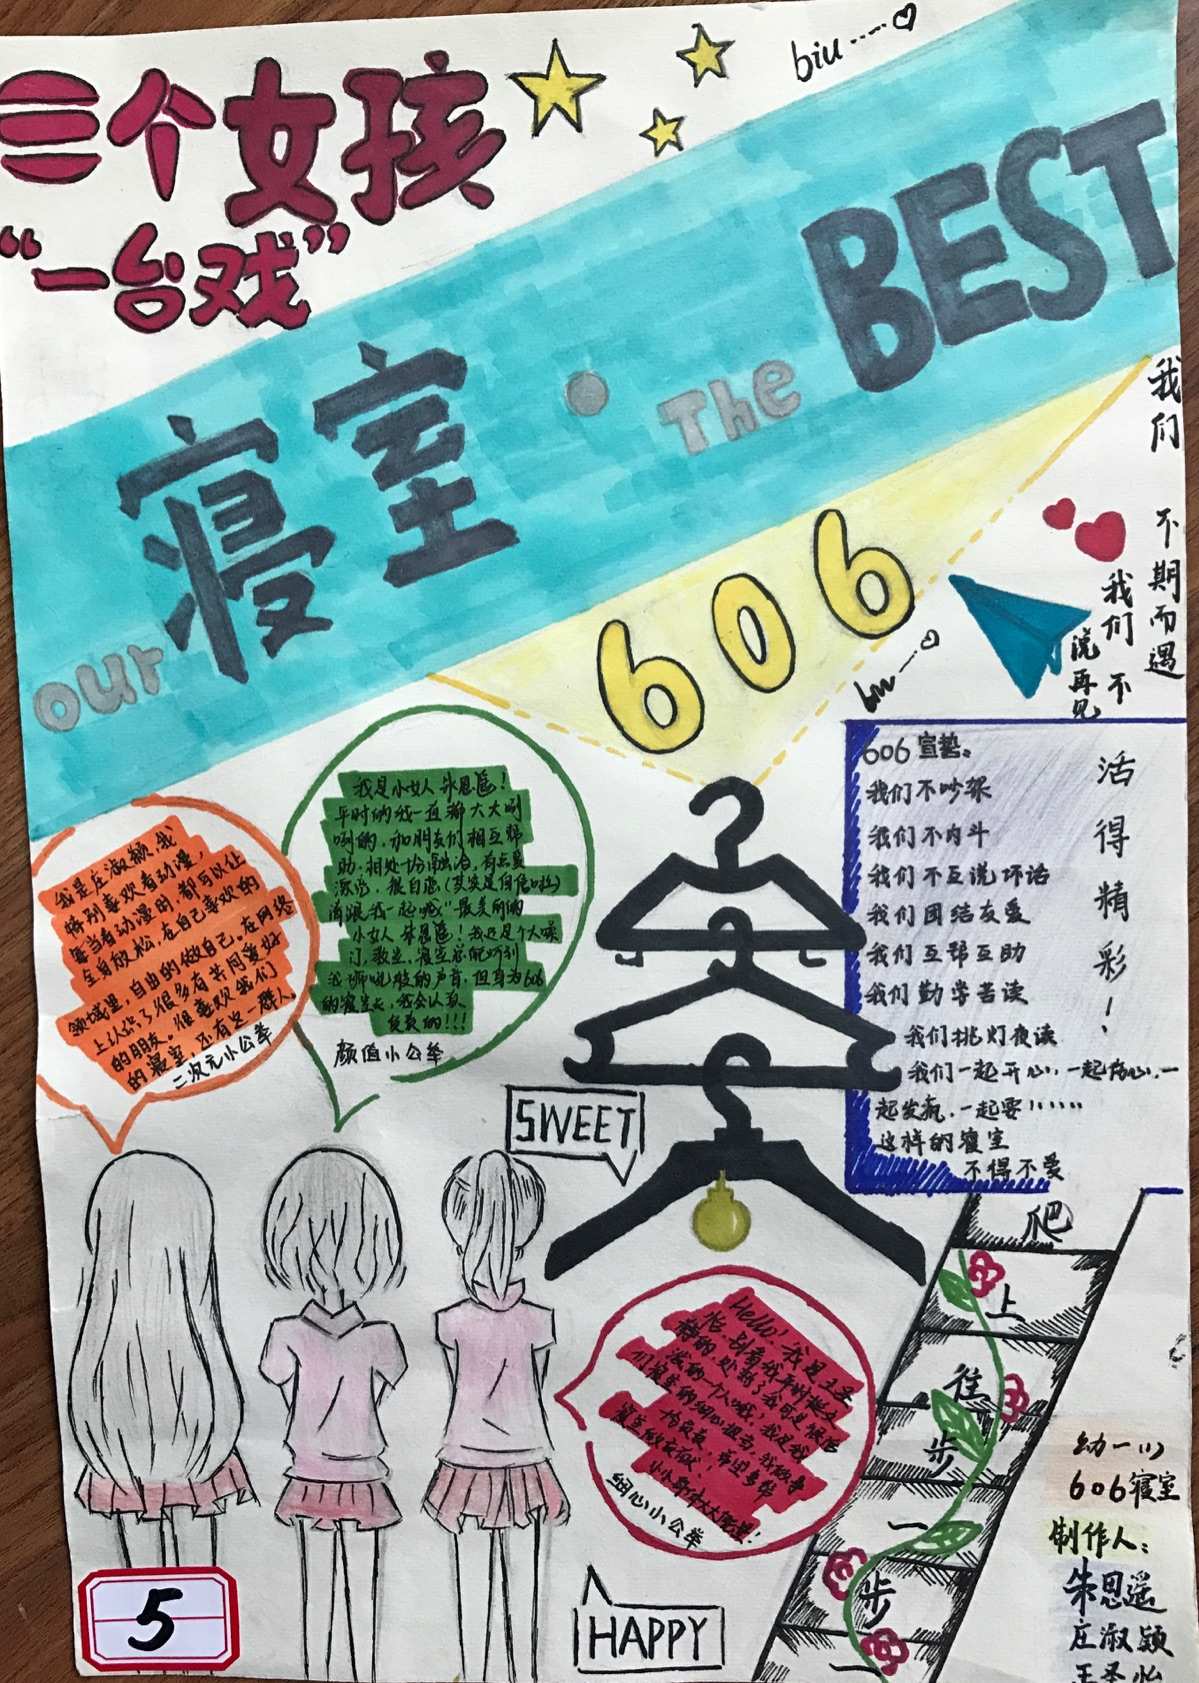 三个女孩
“一台戏”
biu
our 寝室·The BEST
606
biu
我们
不期而遇
我们不
说再见
606宣誓。
我们不吵架
我们不内斗
我们不互说坏话
我们团结友爱
我们互帮互助
我们勤学苦读
我们挑灯夜读
我们一起开心,一起伤心,一
起发疯,一起耍!!……
这样的寝室
不得不爱
活得精彩!
我是小女人朱思遥!
平时的我一直都大大咧
咧的,和朋友们相互帮
助,相处十分融洽,
很自恋(其实是自信啦)
请跟我一起喊“最美丽的
小女人朱思遥!我还是个大嗓
门,教室、寝室总能听到
我狮吼般的声音,但身为606
的寝室长,我会认真
负责的!!!
颜值小公举
我是庄淑颖,我
特别喜欢看动漫,
每当看动漫时,都可以让
全身放松,在自己喜欢的
领域里,自由的做自己,在网络
上认识了很多有共同爱好
的朋友。很喜欢我们
的寝室,还有这一群人
二次元小公举
SWEET
Hello! 我是王圣
怡,别看我平时挺文
静的,处熟了我可是很活
泼的一个人哦,我是我
们寝室的细心担当,
细心小公举
HAPPY
爬
上
往
步
一
步
一
幼一(1)
606寝室
制作人:
朱思遥
庄淑颖
王圣怡
5